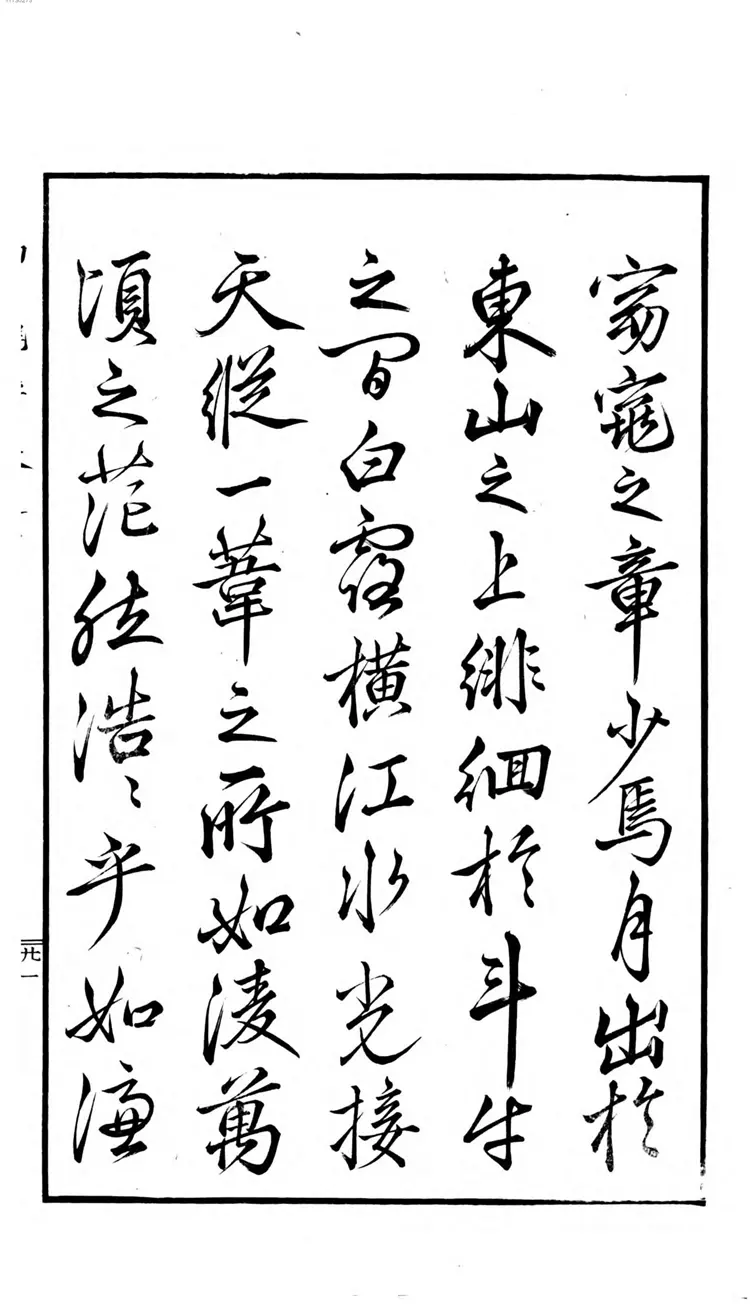 窈窕之章少焉月出於
東山之上徘徊於斗牛
之間白露橫江水光接
天縱一葦之所如淩萬
頃之茫然浩〻乎如馮
廿一